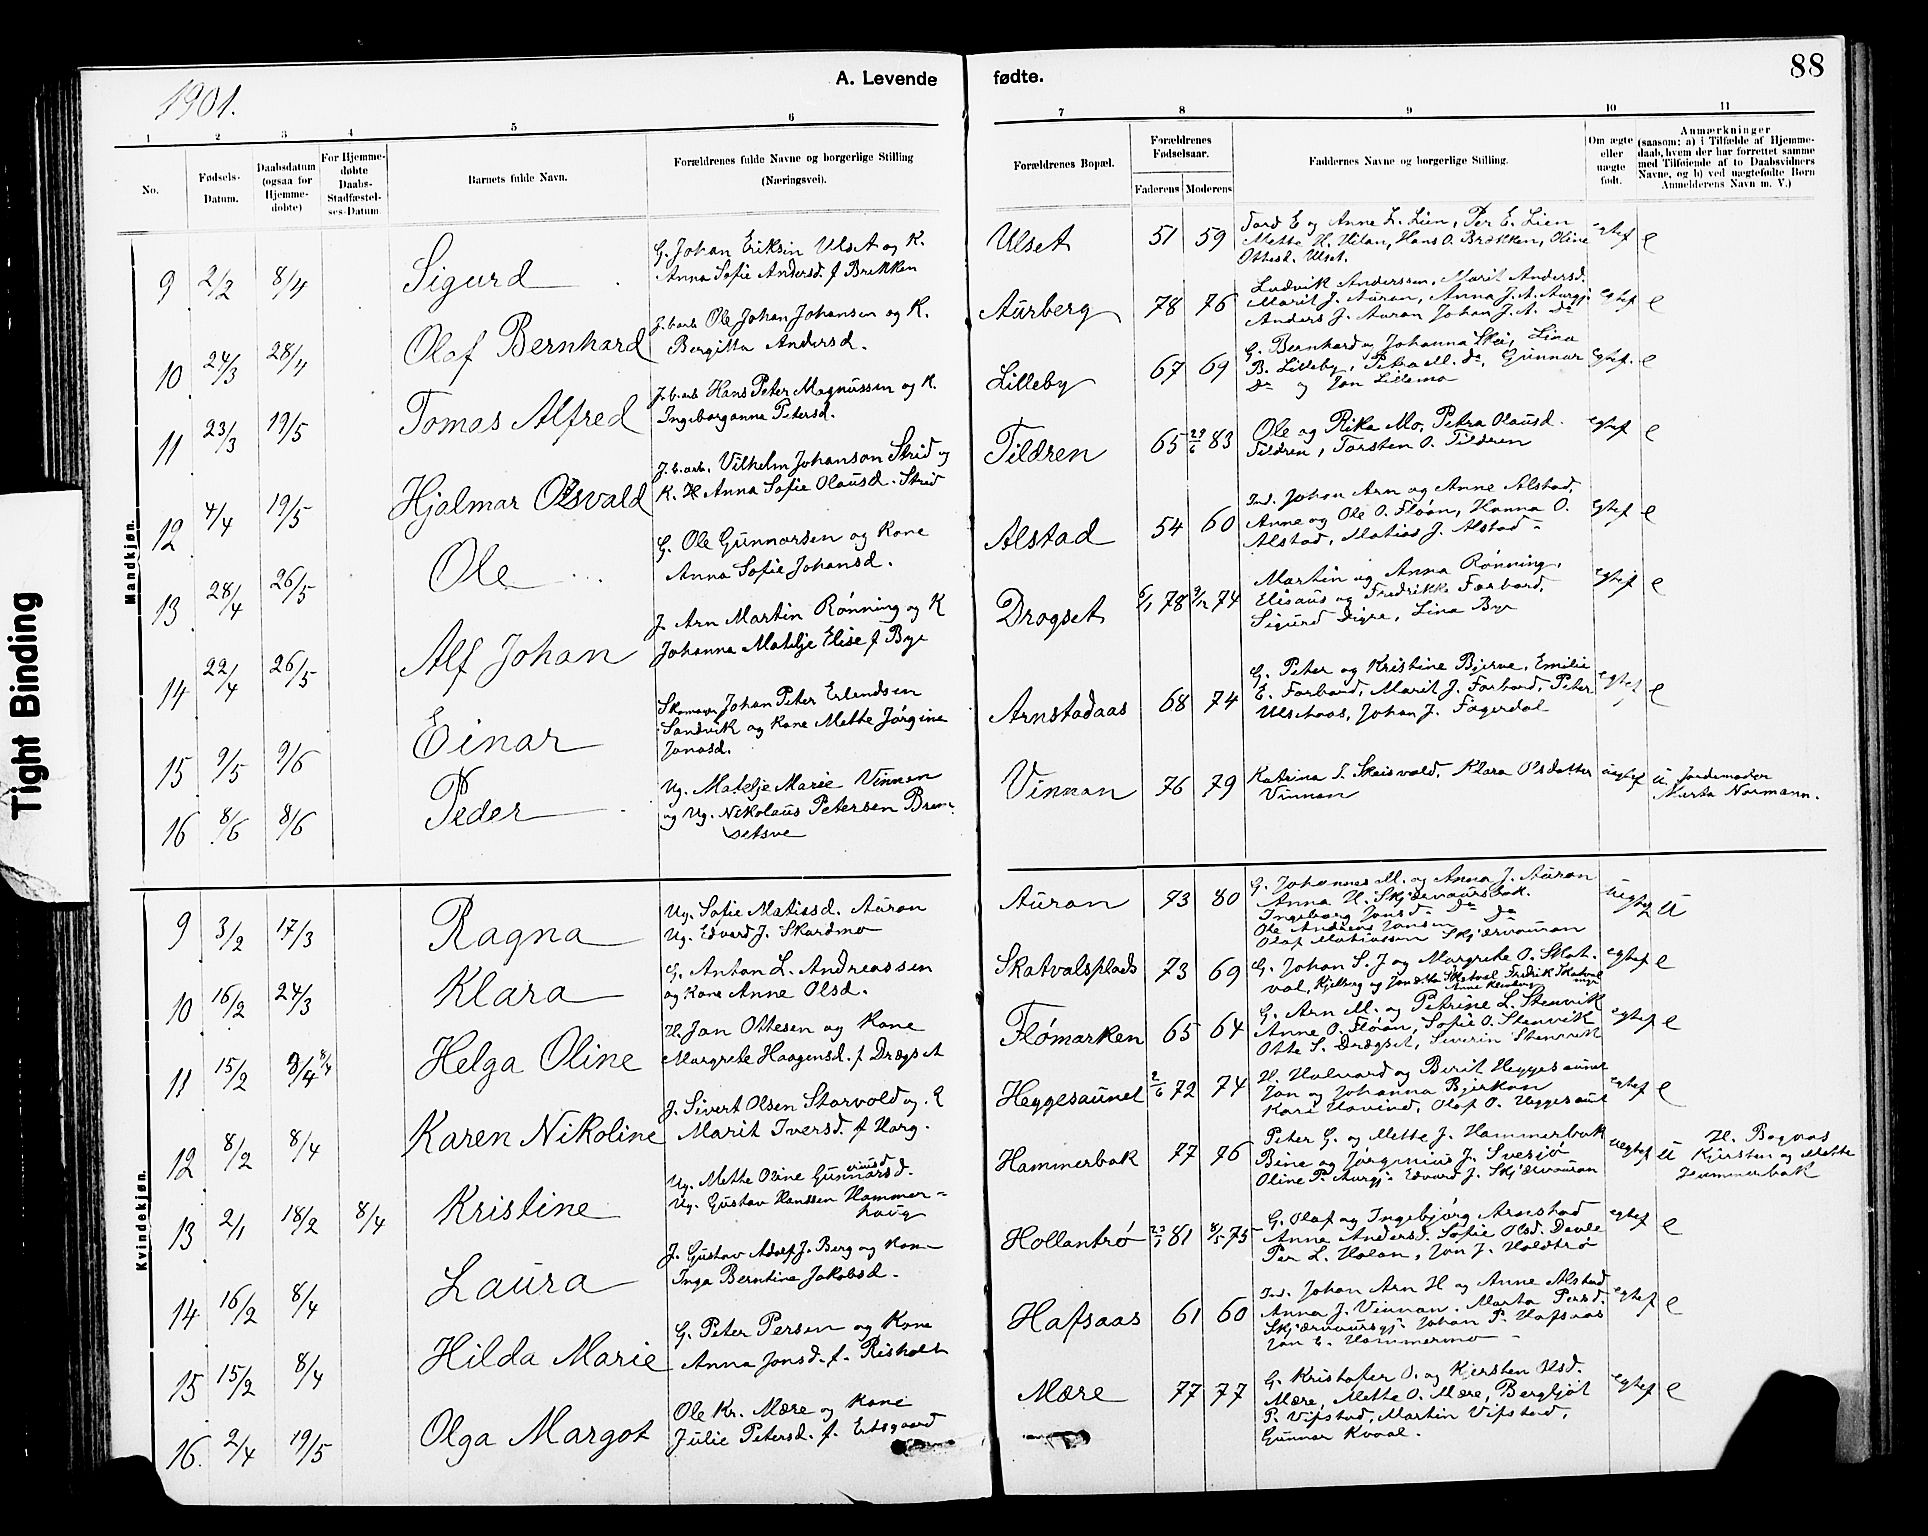 1901.
A. Levende fødte.
88
1 2 3 4 5 6 7 8 9 10 11
No.
Fødsels-Datum.
Daabsdatum (ogsaa for Hjemme-døbte)
For Hjemme-døbte Daabs-Stadfæstel-ses-Datum
Barnets fulde Navn.
Forældrenes fulde Navne og borgerlige Stilling (Næringsvei).
Forældrenes Bopæl.
Forældrenes Fødselsaar.
Faderens Moderens
Faddernes Navne og borgerlige Stilling.
Om ægte eller uægte født.
Anmærkninger (saasom: a) i Tilfælde af Hjemme-daab, hvem der har forrettet samme med Tilføiende af to Daabsvidners Navne, og b) ved uægtefødte Børn Anmelderens Navn m. V.)
Mandkjøn.
9 2/2 8/4 Sigurd
G. Johan Eriksen Ulset og K.
Anna Sofie Andersd. f Brekken
Ulset 51 59
Tord E og Anne L. Lien, Per E. Lien
Mette H. Vilan, Hans O. Brekken, Oline
Ottesd. Ulset.
egtef e
10 24/3 28/4 Olaf Bernhard
J.b.arb. Ole Johan Johansen og K.
Bergitta Andersd.
Aurberg 78 76
Ludvik Anderssen, Marit Andersd.
Marit J. Auran, Anna J. A. Aurgj.
Anders J. Auran Johan J. A. do
egtef e
11 23/3 19/5 Tomas Alfred
J.b.arb Hans Peter Magnussen og K.
Ingeborganna Petersd.
Lilleby 67 69
G. Bernhard og Johanna Skei, Lina
B. Lilleby, Petra M. do, Gunnar
do og Jon Lillemo
egtef. e
12 4/4 19/5 Hjalmar Osvald
J.b.arb. Vilhelm Johanson Strid og
K. Anna Sofie Olausd. Strid
Tildren 65 23/6 83
Ole og Rika Mo, Petra Olausd.
Tildren, Torsten O. Tildren
egtef e
13 28/4 26/5 Ole
G. Ole Gunnarsen og Kone
Anna Sofie Johansd.
Alstad 54 60
Ind. Johan Arn og Anne Alstad,
Anne og Ole O. Fløan, Hanna O.
Alstad, Matias J. Alstad
egtef e
14 22/4 26/5 Alf Johan
J. Arn Martin Rønning og K
Johanna Matelje Elise f Bye
Drogset 6/1 78 9/12 74
Martin og Anna Rønning,
Elisaus og Fredrikke Forbord,
Sigurd Digre, Lina Bye
egtef e
15 9/5 9/6 Einar
Skomager Johan Peter Erlendsen
Sandvik og Kone Mette Jørgine
Jonasd.
Arnstadaas 68 74
G. Peter og Kristine Bjerve, Emilie
E. Forbord, Marit J. Forbord, Peter
Ulsetaas, Johan J. Fagerdal
egtef e
16 8/6 8/6 Peder
Ug. Matelje Marie Vinnan
og Ug. Nikolaus Petersen Bren-
setsve
Vinnan 76 79
Katrina S. Skeisvald, Klara Olsdatter
Vinnan
uegtef u
Jordemoder
Marta Normann.
Kvindekjøn.
9 3/2 17/3 Ragna
Ug. Sofie Matiasd. Auran
Ug. Edvard J. Skardmo
Auran 73 80
G. Johannes M. og Anna J. Auran
Anna H. Skjærvaursbak.
Ingeborg Jonsd. do
Ole Andreas Jonsen do
Olaf Matiassen Skjærvauran
uegtef u
10 16/2 24/3 Klara
G. Anton L. Andreassen
og Kone Anne Olsd.
Skatvalsplads 73 69
G. Johan S. J og Margrete O. Skat-
val,
egtef e
11 15/2 8/4 Helga Oline
H. Jon Ottesen og Kone
Margrete Haagensd. f Drægset
Flømarken 65 64
G. Arn M. og Petrine L. Stenvik
Anne O. Fløan, Sofie O. Stenvik
Otte S. Drægset, Severin Stenvik
egtef e
12 8/2 8/4 Karen Nikoline
J. Sivert Olsen Storvold og K
Marit Iversd. f Varg.
Heggesaunet 2/6 72 74
H. Halvard og Berit Heggesaunet
Jon og Johanna Bjerkan
Kari Havind, Olaf O. Heggesaunet
egtef e
13 2/1 18/2 8/4 Kristine
Ug. Mette Oline Gunnarsd.
Ug. Gustav Hanssen Hammer-
haug
Hammerbak 77 76
Peter G. og Mette J. Hammerbak
Bine og Jørginius J. Svesjø
Oline P. Aurgj. Edvard J. Skjærvauran
uegtef u
H. Bagnas
Kirsten og Mette
Hammerbak
14 16/2 8/4 Laura
J. Gustav Adolf J. Berg og Kone
Inga Berntine Jakobsd.
Hollantrø 23/1 81 8/5 75
G. Olaf og Ingebjørg Arnestad
Anne Andersd. Sofie Olsd. Davle
Per L. Holan, Jon J. Holdtrø
egtef e
15 15/2 8/4 Hilda Marie
G. Peter Persen og Kone
Anna Jonsd. f. Risholt
Hafsaas 61 60
Ind. Johan Arn H og Anne Alstad
Anna J. Vinnan. Marta Persd.
Skjærvaursgj. Johan P. Hafsaas
Jon E. Hammermo
egtef e
16 2/4 19/5 Olga Margot
Ole Kr. Mære og Kone
Julie Petersd. f. Ertsgaard
Mære 77 77
G. Kristofer O. og Kjersten Olsd.
Mære, Mette O. Mære, Bergljot
P. Vifstad, Martin Vifstad,
Gunnar Kvaal.
egtef e
Tight Binding